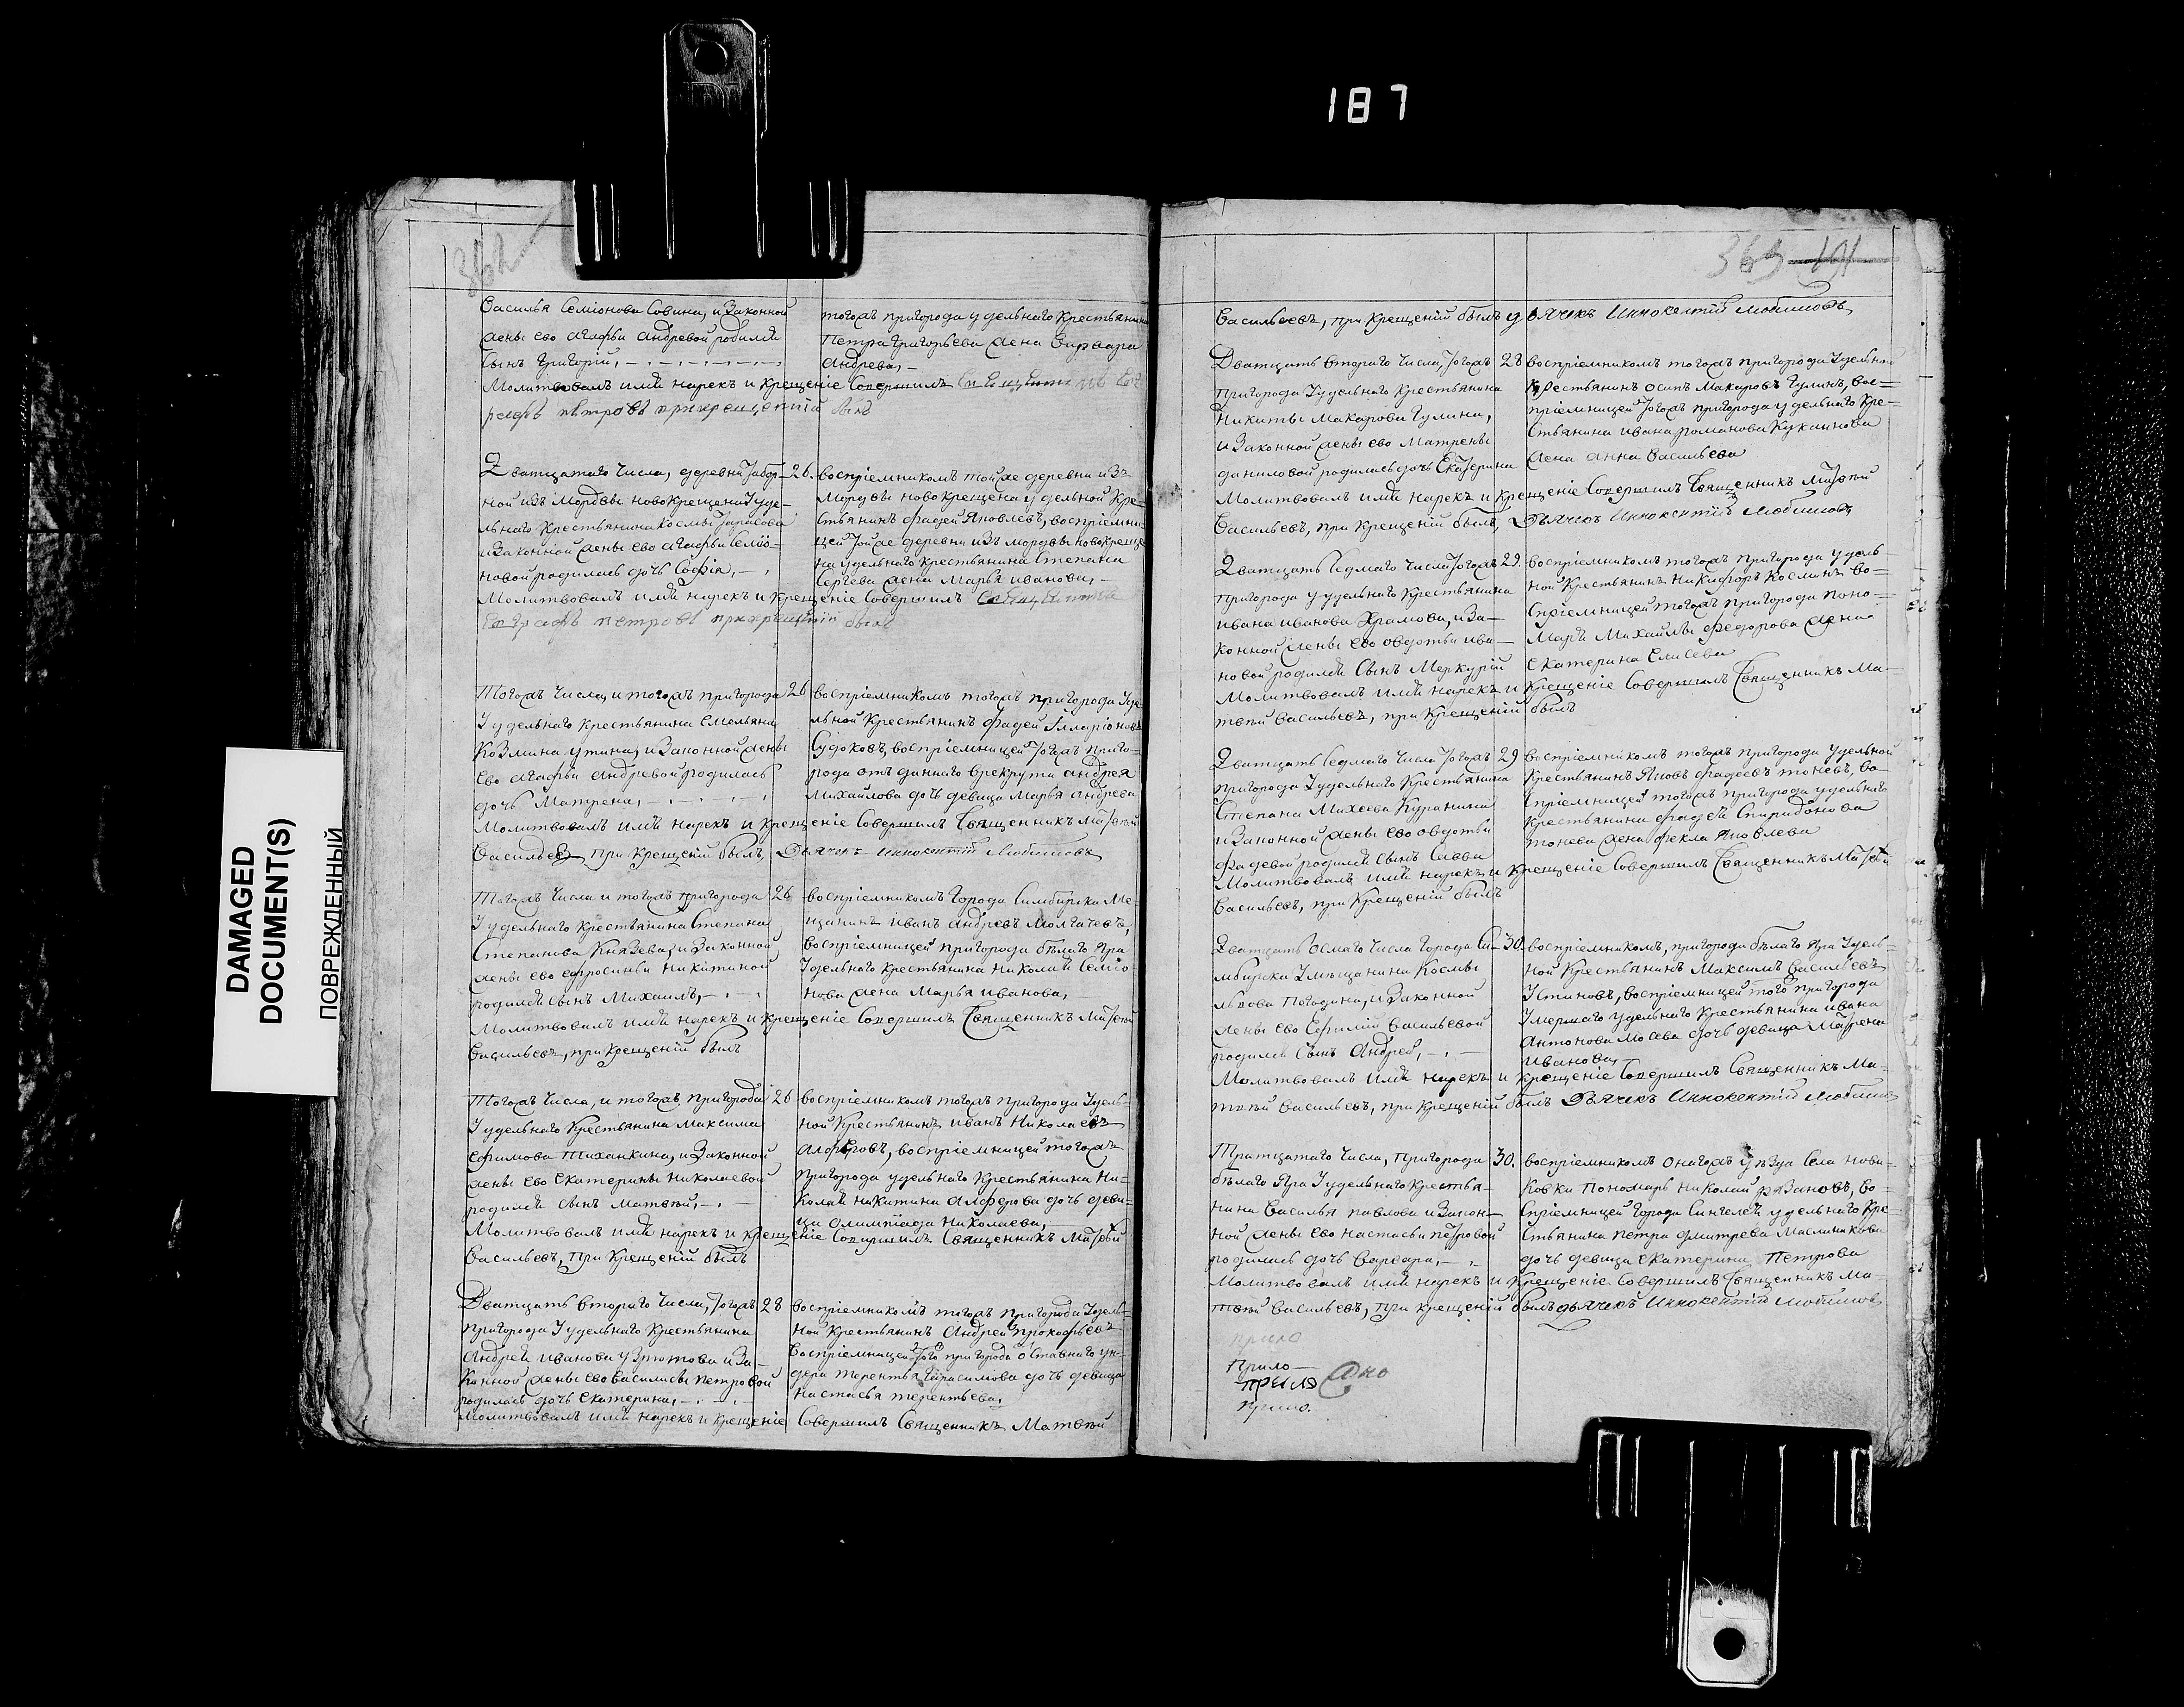 187
DAMAGED
DOCUMENT(S)
ПОВРЕЖДЕННЫЙ
362
Василья Семіонова Совина, и Законной
жены ево агафьи андревой родился
сынъ Григорій,
тогожъ пригорода удельнаго Крестьянина
Петра Григорьева жена варвара
андрева,
Молитвовалъ имя нарекъ и крещеніе Совершилъ
петровъ прикрещеніи былъ
Дватцатаго Числа, деревни
ной изъ Мордвы новокрещена Уде-
льнаго Крестьянина Космы Тарасова
и Законной жены ево агафьи Семіо-
новой родилась дочь Софія,
26.
воспріемникомъ тойже деревни изъ
Мордвы новокрещена удельной Кре-
стьянинъ фадей Яковлевъ, воспріемни-
цей тойже деревни изъ мордвы новокреще-
на удельнаго крестьянина Степана
Сергева жена Марья иванова,
Молитвовалъ имя нарекъ и крещеніе Совершилъ
петровъ прикрещеніи былъ
Тогожъ Числа, и тогожъ пригорода
Удельнаго крестьянина Емельяна
Козмина утина, и Законной жены
Ево агафьи андревой родилась
дочь Матрена,
26
воспріемникомъ тогожъ пригорода Уде-
льной Крестьянинъ фадей Илларіоновъ
Судоковъ, воспріемницей тогожъ приго-
рода отъданнаго врекруты андрея
Михайлова дочь девица Марья андрева
Молитвовалъ имя нарекъ и крещеніе Совершилъ Священникъ Матвей
Васильевъ, при Крещеніи былъ, Дьячекъ иннокентій Любимовъ
Тогожъ Числа и тогожъ пригорода
Удельнаго Крестьянина Степана
Степанова Князева, и Законной
жены ево ефросиньи Никитиной
родился сынъ Михаилъ,
26
воспріемникомъ Города Симбирска Ме-
щанинъ иванъ андревъ Молгачевъ,
воспріемницей пригорода белаго Яра
Удельнаго крестьянина Николая Семіо-
нова жена Марья иванова,
Молитвовалъ имя нарекъ и крещеніе Совершилъ Священникъ Матвей
Васильевъ, при крещеніи былъ
Тогожъ Числа, и тогожъ пригорода
Удельнаго Крестьянина Максима
ефимова Тиханкина, и Законной
жены ево екатерины Николаевой
родился сынъ Матвей,
26
воспріемникомъ тогожъ пригорода Удель-
ной Крестьянинъ иванъ Николаевъ
алферовъ, воспріемницей тогожъ
Пригорода удельнаго Крестьянина Ни-
колая никитина алферова дочь деви-
ца олимпіада Николаева,
Молитвовалъ имя нарекъ и крещеніе Совершилъ Священникъ Матвей
Васильевъ, при Крещеніи былъ
Дватцать втораго Числа, тогожъ
пригорода Удельнаго Крестьянина
Андрея иванова Узютова и За-
конной жены ево василисы петровой
родилась дочь екатерина,
28
воспріемникомъ тогожъ пригорода Удель-
ной Крестьянинъ Андрей прокофьевъ
воспріемницей того пригорода оставнаго ун-
дера терентья Герасимова дочь девица
настасья терентьева,
Молитвовалъ имя нарекъ и крещеніе Совершилъ Священникъ Матвей
363 191
Васильевъ, при крещеніи былъ дьячекъ Иннокентій Любимовъ
Дватцать втораго Числа, тогожъ
пригорода Удельнаго Крестьянина
Никиты Макарова Гулина,
и Законной жены ево Матрены
даниловой родилась дочь екатерина
28
воспріемникомъ тогожъ пригорода Удельной
Крестьянинъ осипъ Макаровъ Гулинъ, вос-
пріемницей тогожъ пригорода удельнаго Кре-
стьянина ивана романова Куканнова
жена анна васильева
Молитвовалъ имя нарекъ и Крещеніе Совершилъ Священникъ Матвей
Васильевъ, при Крещеніи былъ, Дьячекъ Иннокентій Любимовъ
Дватцать Седмаго Числа тогожъ
пригорода удельнаго крестьянина
ивана иванова Храмова, и За-
конной жены ево овдотьи ива-
новой родился сынъ Меркурій
29.
воспріемникомъ тогожъ пригорода удель-
ной Крестьянинъ Никифоръ Косминъ во-
спріемницей тогожъ пригорода поно-
маря Михайлы федорова жена
екатерина елисева
Молитвовалъ имя нарекъ и Крещеніе Совершилъ Священникъ Ма-
твей Васильевъ, при Крещеніи былъ
Дватцать Седмаго Числа тогожъ
пригорода Удельнаго Крестьянина
Степана Михеева Куранина
и Законной жены ево овдотьи
фадевой родился сынъ Савва
29
воспріемникомъ тогожъ пригорода удельной
крестьянинъ Яковъ фадеевъ тоневъ, во-
спріемницей тогожъ пригорода удельнаго
крестьянина фадея Спиридонова
тонева жена фекла Яковлева
Молитвовалъ имя нарекъ и Крещеніе Совершилъ Священникъ Матвей
Васильевъ, при Крещеніи былъ
Дватцать осмаго Числа города Си-
мбирска Умещанина Космы
львова Погодина, и Законной
жены ево Ефиміи васильевой
родился сынъ Андрей,
30.
воспріемникомъ, пригорода белаго Яра Удель-
ной Крестьянинъ Максимъ Васильевъ
Устиновъ, воспріемницей того пригорода
Умершаго удельнаго крестьянина ивана
Антонова Мосева дочь девица Матрена
иванова,
Молитвовалъ имя нарекъ и крещеніе Совершилъ Священникъ Ма-
твей Васильевъ, при Крещеніи былъ Дьячекъ Иннокентій Любимовъ
Тритцатаго Числа, Пригорода
белаго Яра Удельнаго Крестья-
нина василья павлова и Закон-
ной жены ево настасьи петровой
родилась дочь варвара,
30.
воспріемникомъ онагожъ уезда Села нови-
ковки Пономарь николай рязановъ, во-
спріемницей города Сингелея удельнаго Кре-
стьянина петра дмитрева Масленикова
дочь девица екатерина Петрова
Молитвовалъ имя нарекъ и крещеніе Совершилъ Священникъ Ма-
твей васильевъ, при крещеніи былъ дьячекъ Иннокентій Любимовъ
Прило